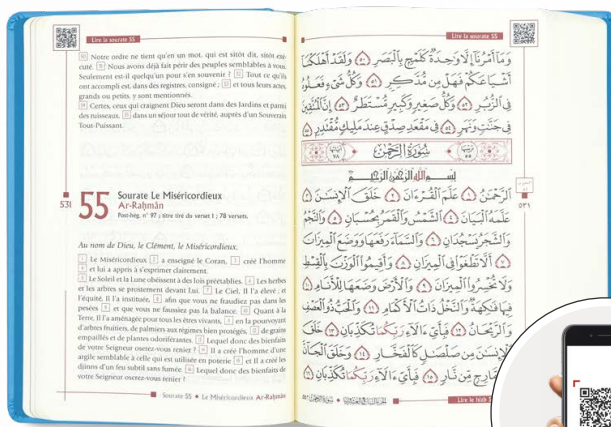 Lire la sourate 55
50 Notre ordre ne tient qu'en un mot, qui est sitôt dit, sitôt exé-
cuté. 51 Nous avons déjà fait périr des peuples semblables à vous.
Seulement est-il quelqu'un pour s'en souvenir ? 52 Tout ce qu'ils
ont accompli est, dans des registres, consigné ; 53 et tous leurs actes,
grands ou petits, y sont mentionnés.
54 Certes, ceux qui craignent Dieu seront dans des Jardins et parmi
des ruisseaux, 55 dans un séjour tout de vérité, auprès d'un Souverain
Tout-Puissant.
531
55
Sourate Le Miséricordieux
Ar-Raḥmân
Post-hég. n° 97 ; titre tiré du verset 1 ; 78 versets.
Au nom de Dieu, le Clément, le Miséricordieux.
1 Le Miséricordieux 2 a enseigné le Coran, 3 créé l'homme
4 et lui a appris à s'exprimer clairement.
5 Le Soleil et la Lune obéissent à des lois préétablies. 6 Les herbes
et les arbres se prosternent devant Lui. 7 Le Ciel, Il l'a élevé ; et
l'équité, Il l'a instituée, 8 afin que vous ne fraudiez pas dans les
pesées 9 et que vous ne faussiez pas la balance. 10 Quant à la
Terre, Il l'a aménagée pour tous les êtres vivants, 11 en la pourvoyant
d'arbres fruitiers, de palmiers aux régimes bien protégés, 12 de grains
empaillés et de plantes odoriférantes. 13 Lequel donc des bienfaits
de votre Seigneur oserez-vous renier ? 14 Il a créé l'homme d'une
argile semblable à celle qui est utilisée en poterie 15 et Il a créé les
djinns d'un feu subtil sans fumée. 16 Lequel donc des bienfaits de
votre Seigneur oserez-vous renier ?
Sourate 55 • Le Miséricordieux Ar-Raḥmân
Lire la sourate 55
وَمَا أَمْرُنَا إِلَّا وَاحِدَةٌ كَلَمْحٍ بِالْبَصَرِ ٥٠ وَلَقَدْ أَهْلَكْنَا
أَشْيَاعَكُمْ فَهَلْ مِن مُّدَّكِرٍ ٥١ وَكُلُّ شَيْءٍ فَعَلُوهُ
فِي الزُّبُرِ ٥٢ وَكُلُّ صَغِيرٍ وَكَبِيرٍ مُّسْتَطَرٌ ٥٣ إِنَّ الْمُتَّقِينَ
فِي جَنَّاتٍ وَنَهَرٍ ٥٤ فِي مَقْعَدِ صِدْقٍ عِندَ مَلِيكٍ مُّقْتَدِرٍ ٥٥
سُورَةُ الرَّحْمَٰن
بِسْمِ اللَّهِ الرَّحْمَٰنِ الرَّحِيمِ
الرَّحْمَٰنُ ١ عَلَّمَ الْقُرْءَانَ ٢ خَلَقَ الْإِنسَٰنَ ٣
عَلَّمَهُ الْبَيَانَ ٤ الشَّمْسُ وَالْقَمَرُ بِحُسْبَانٍ ٥ وَالنَّجْمُ
وَالشَّجَرُ يَسْجُدَانِ ٦ وَالسَّمَاءَ رَفَعَهَا وَوَضَعَ الْمِيزَانَ
٧ أَلَّا تَطْغَوْا فِي الْمِيزَانِ ٨ وَأَقِيمُوا الْوَزْنَ بِالْقِسْطِ
وَلَا تُخْسِرُوا الْمِيزَانَ ٩ وَالْأَرْضَ وَضَعَهَا لِلْأَنَامِ ١٠
فِيهَا فَاكِهَةٌ وَالنَّخْلُ ذَاتُ الْأَكْمَامِ ١١ وَالْحَبُّ ذُو الْعَصْفِ
وَالرَّيْحَانُ ١٢ فَبِأَيِّ ءَالَاءِ رَبِّكُمَا تُكَذِّبَانِ ١٣ خَلَقَ
الْإِنسَٰنَ مِن صَلْصَٰلٍ كَالْفَخَّارِ ١٤ وَخَلَقَ الْجَانَّ
مِن مَّارِجٍ مِّن نَّارٍ ١٥ فَبِأَيِّ ءَالَاءِ رَبِّكُمَا تُكَذِّبَانِ ١٦
٥٣١
Lire le hizb